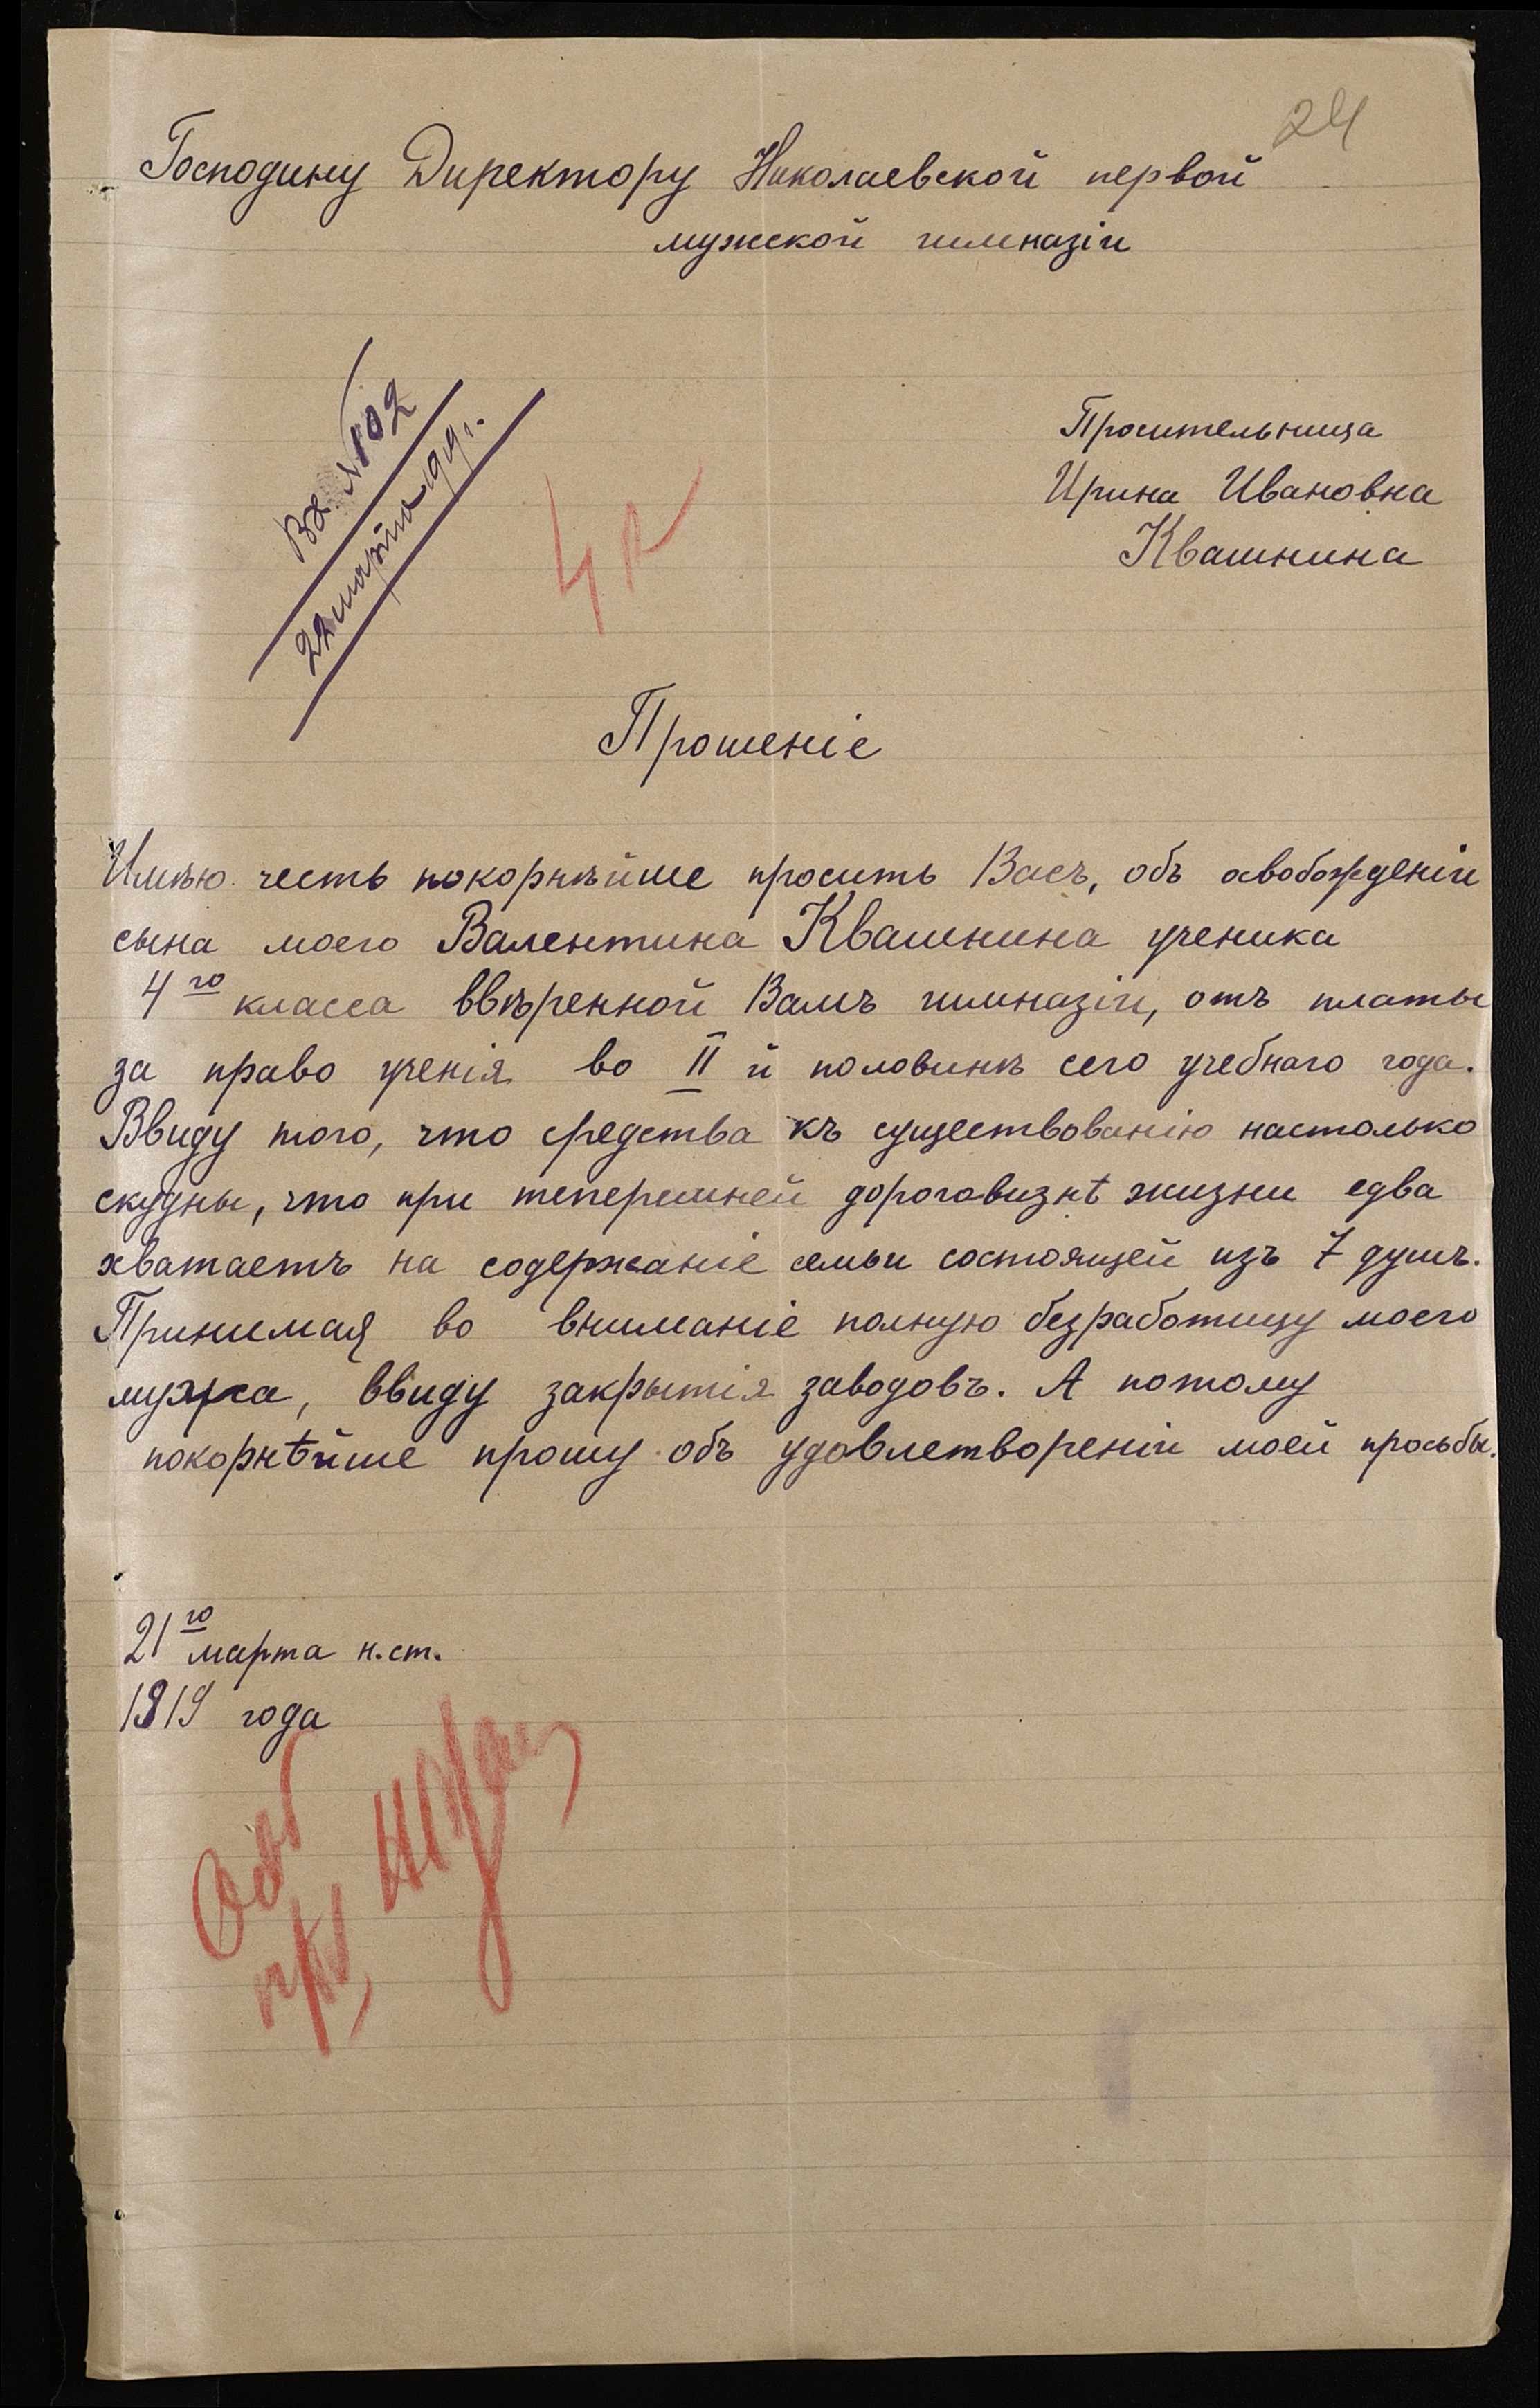 24
Господину Директору Николаевской первой
мужской гимназіи
Вх. №102
22 марта 1919 г.
Просительница
Ирина Ивановна
Квашнина
4 к
Прошеніе
Имѣю честь покорнѣйше просить Васъ, объ освобожденіи
сына моего Валентина Квашнина ученика
4го класса ввѣренной Вамъ гимназіи, отъ платы
за право ученія во II й половинѣ сего учебнаго года.
Ввиду того, что средства къ существованію настолько
скудны, что при теперешней дороговизнѣ жизни едва
хватаетъ на содержаніе семьи состоящей изъ 7 душъ.
Принимая во вниманіе полную безработицу моего
мужа, ввиду закрытія заводовъ. А потому
покорнѣйше прошу объ удовлетвореніи моей просьбы.
21го марта н.ст.
1919 года